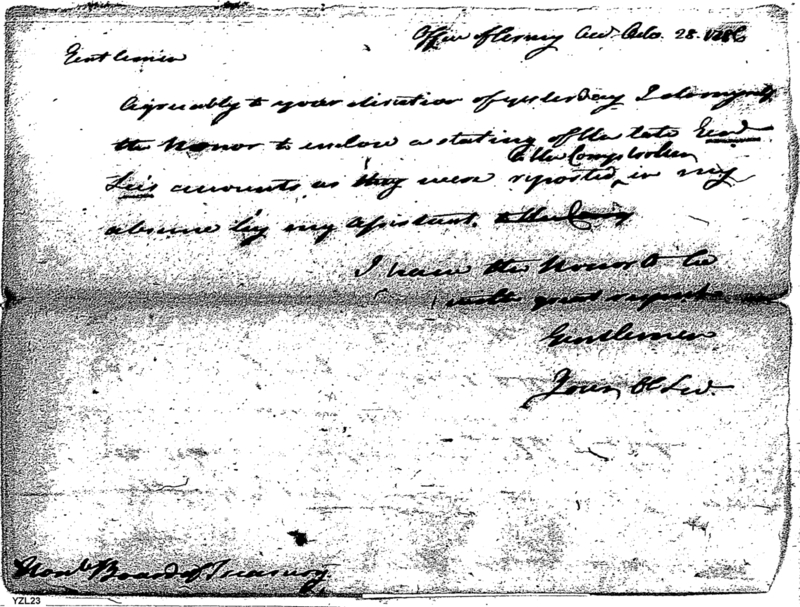 Office of Army Acc. Octo. 28. 1786
Gentlemen
Agreeably to your direction of yesterday I do myself
the Honor to enclose a stating of the late Genl.
to the Comr.
Lee's accounts as they were reported, in my
absence by my Assistant.
I have the Honor to be
with great respect
Gentlemen
Your Ob Servt.
Honble Board of Treasury
YZL23